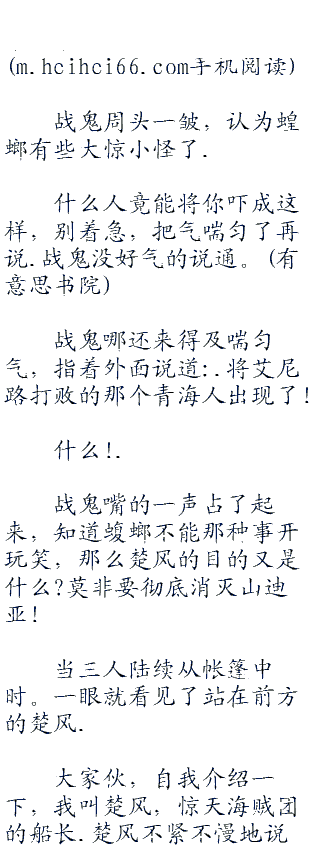 (m.hcihci66.com手机阅读)
战鬼周头一皱，认为蝗
螂有些大惊小怪了.
什么人竟能将你吓成这
样，别着急，把气喘匀了再
说.战鬼没好气的说通。(有
意思书院)
战鬼哪还来得及喘匀
气，指着外面说道:.将艾尼
路打败的那个青海人出现了!
什么!.
战鬼嘴的一声占了起
来，知道蝮螂不能那种事开
玩笑，那么楚风的目的又是
什么?莫非要彻底消灭山迪
亚!
当三人陆续从帐篷中
时。一眼就看见了站在前方
的楚风.
大家伙，自我介绍一
下，我叫楚风，惊天海贼团
的船长.楚风不紧不慢地说